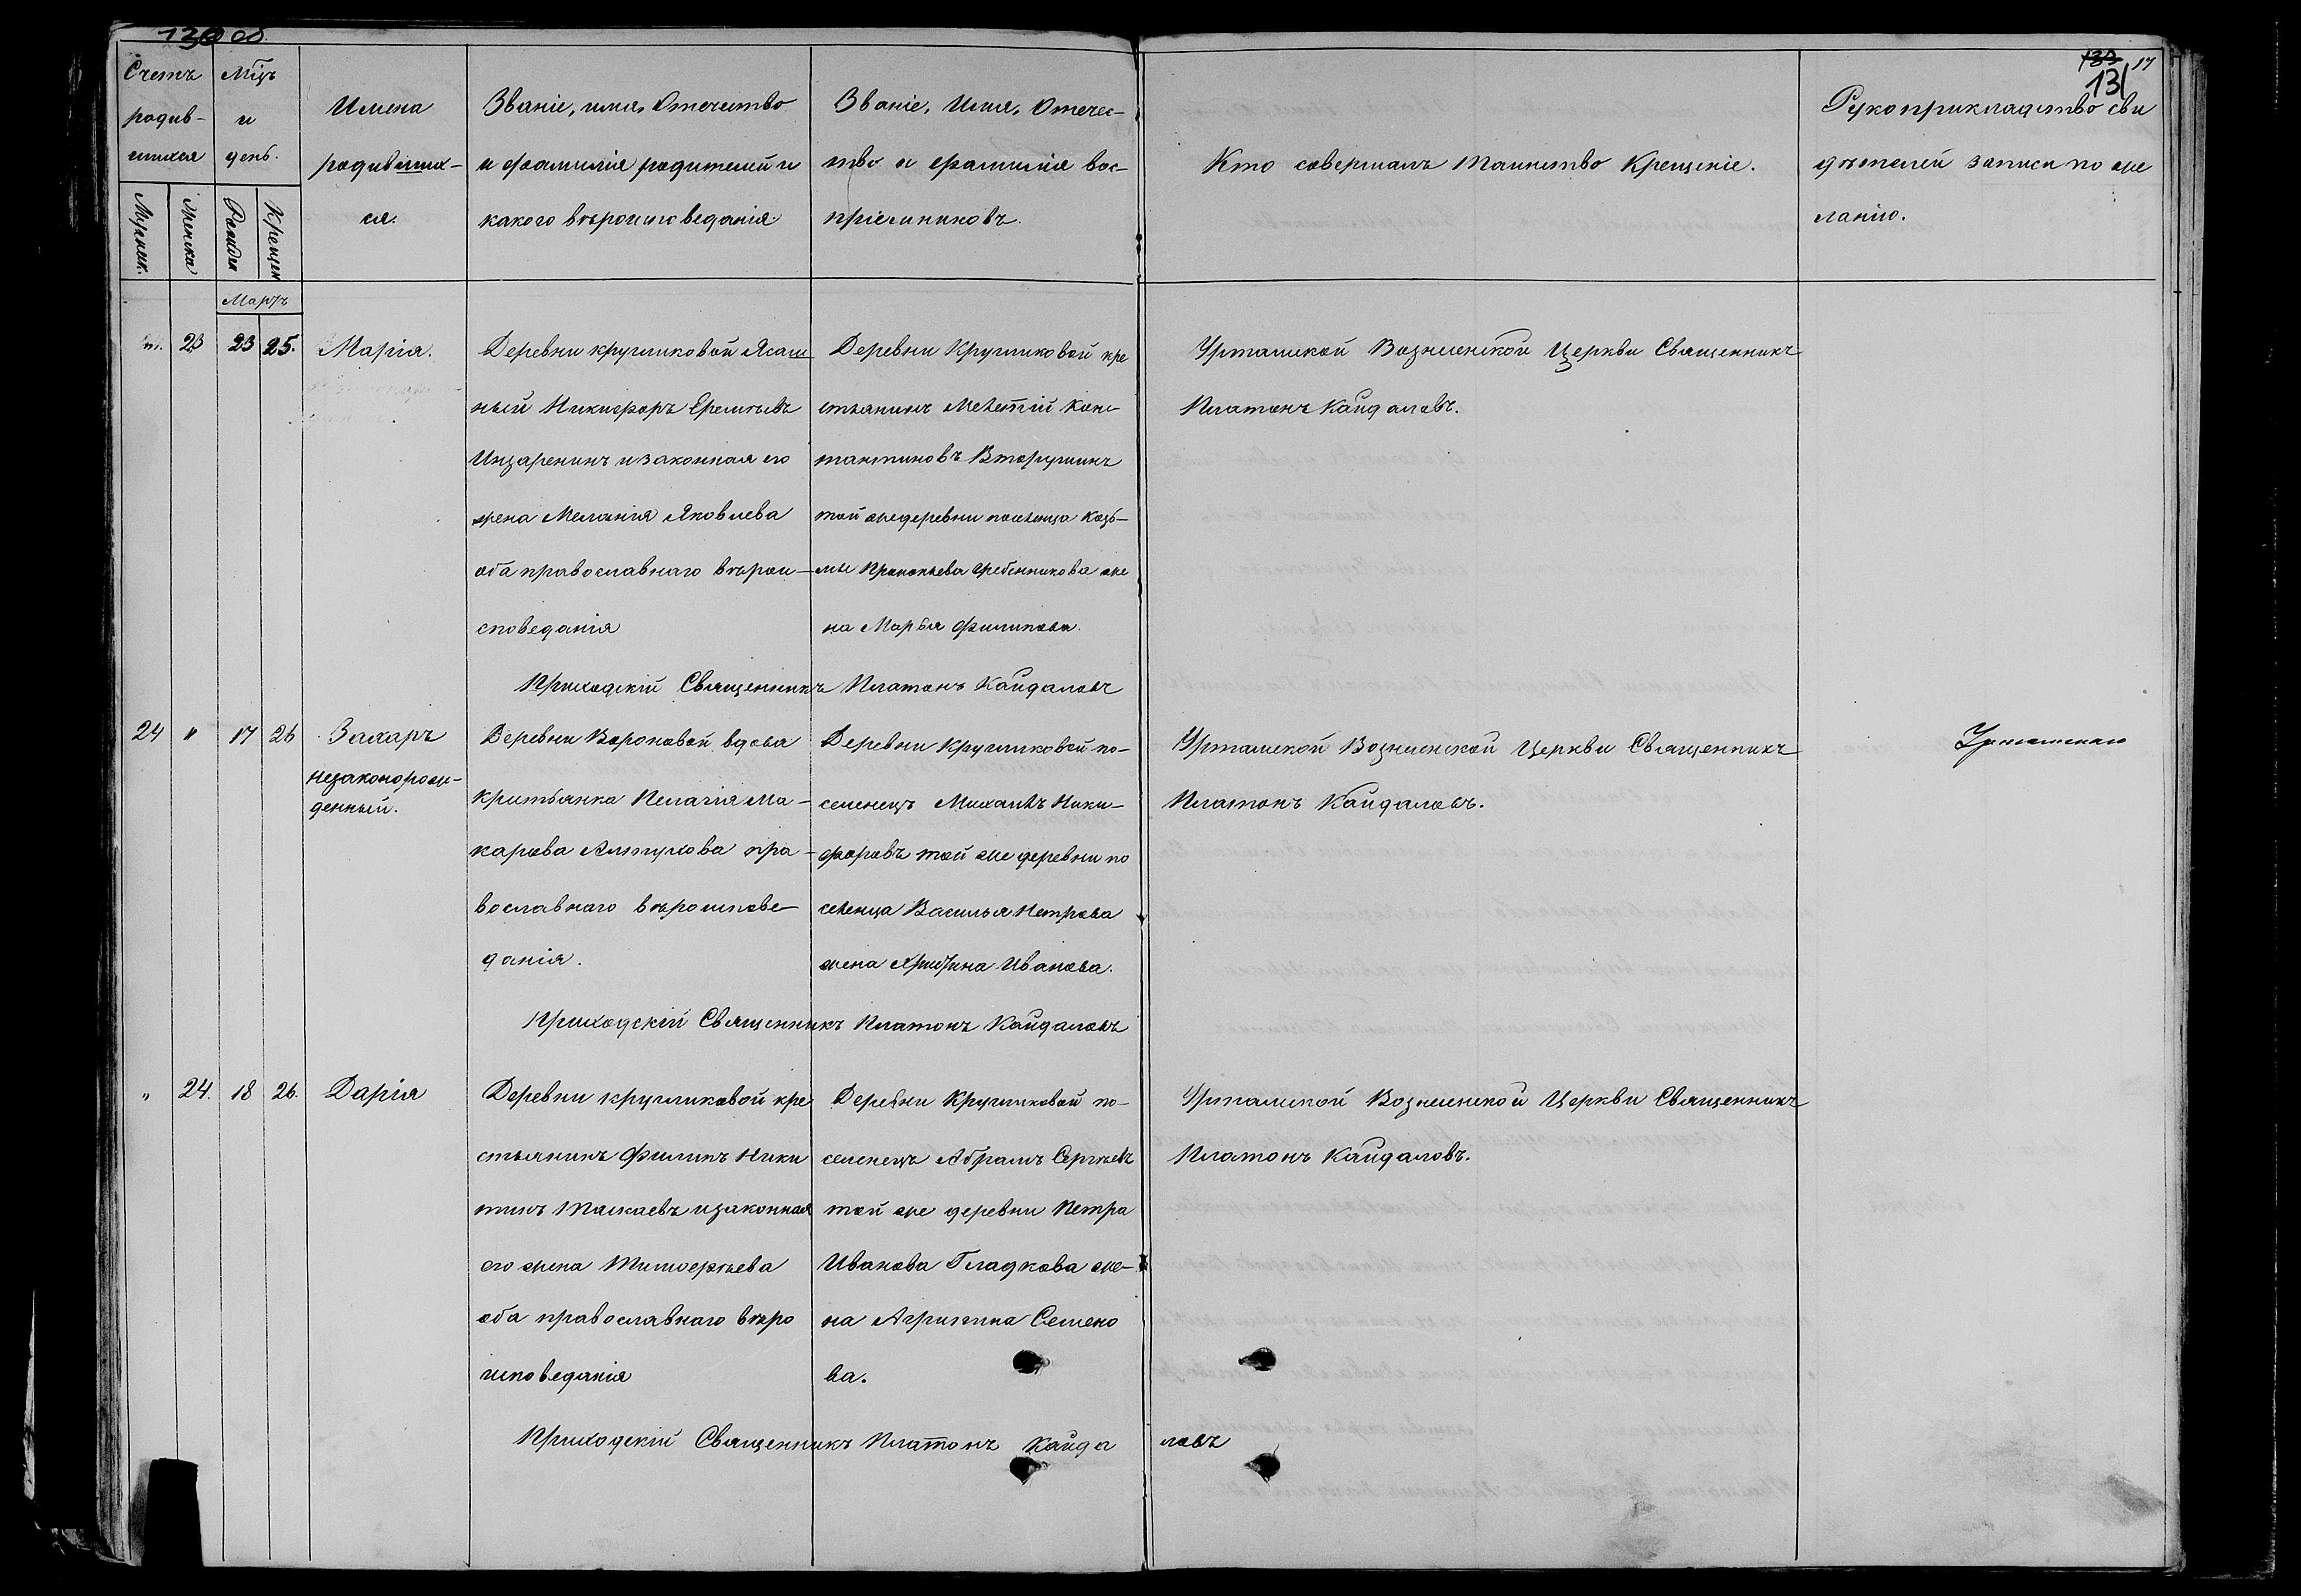 130 об.
133 17
131
Счетъ родив-шихся
Мцъ и день.
Имена родившихся.
Званіе, имя, Отчество и фамилія родителей и какого вѣроисповеданія
Званіе, Имя, Отечество и фамилія воспріемниковъ.
Кто совершалъ Таинство Крещеніе.
Рукоприкладство свидѣтелей записи по желанію.
Мужеск.
Женска
Рожден
Крещен
Мартъ
23 23 25. Марія.
Деревни кругликовой Ясаш
ный Никифоръ Еремѣевъ
и законная его
жена Меланія Яковлева
оба православнаго вѣрои-
споведанія
Деревни Кругликовой кре
стьянинъ Мелетій Конс
тантиновъ Вторушинъ
той же деревни поселенца Козь-
мы Прокопьева Гребенникова же
на Марья Филипова.
Уртамской Вознесенской Церкви Священникъ
Платонъ Кайдаловъ.
Приходскій Священникъ Платонъ Кайдаловъ
24 " 17 26 Захаръ
незаконорож-
денный.
Деревни Вороновой вдова
крестьянка Пелагія Ма-
карова Алтухова пра-
вославнаго вѣроиспове-
данія.
Деревни Кругликовой по-
селенецъ Михаилъ Ники-
форовъ той же деревни по
селенца Василья Петрова
жена Ивановa.
Уртамской Вознесенской Церкви Священникъ
Платонъ Кайдаловъ.
Приходскій Священникъ Платонъ Кайдаловъ
" 24. 18 26. Дарія
Деревни кругликовой кре
стьянинъ Филипъ Ники
тинъ Таскаевъ и законная
его жена Тимофѣева
оба православнаго вѣро
исповеданія
Деревни Кругликовой по-
селенецъ Абрамъ Сергѣевъ
той же деревни Петра
Иванова Гладкова же-
на Агрипина Семено
ва.
Уртамской Вознесенской Церкви Священникъ
Платонъ Кайдаловъ.
Приходскій Священникъ Платонъ Кайда ловъ